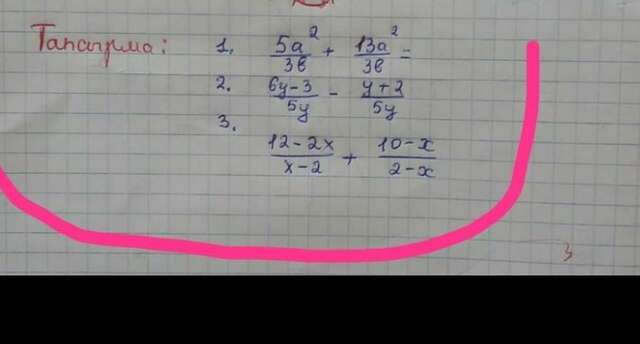 Тапсырма: 1. 5a²/3в + 13a²/3в =
2. 6y-3/5y - y+2/5y
3. 12-2x/x-2 + 10-x/2-x